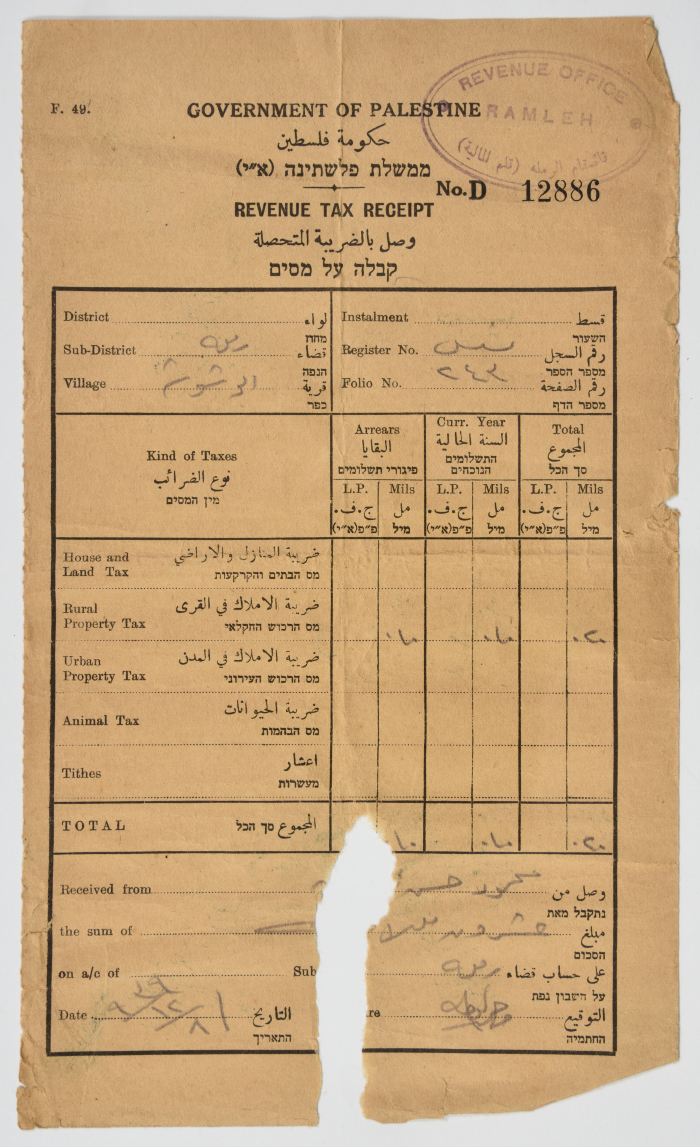 REVENUE OFFICE
RAMLEH
F. 49.
GOVERNMENT OF PALESTINE
حكومة فلسطين
ממשלת פלשתינה (א״י)
No. D 12886
REVENUE TAX RECEIPT
وصل بالضريبة المتحصلة
קבלה על מסים
District لواء
מחוז
Sub-District رمله قضاء
הנפה
Village قرية
כפר
Instalment قسط
השעור
Register No. رقم السجل
מספר הספר
Folio No. ٢٤٣ رقم الصفحة
מספר הדף
Kind of Taxes
نوع الضرائب
מין המסים
Arrears
البقايا
פיגורי תשלומים
Curr. Year
السنة الحالية
התשלומים
הנוכחים
Total
المجموع
סך הכל
L.P. Mils L.P. Mils L.P. Mils
ج.ف. مل ج.ف. مل ج.ف. مل
פ״פ(א״י) מיל פ״פ(א״י) מיל פ״פ(א״י) מיל
House and ضريبة المنازل والاراضي
Land Tax מס הבתים והקרקעות
Rural ضريبة الاملاك في القرى
Property Tax מס הרכוש החקלאי
٠١٠ ٠١٠ ٠٢٠
Urban ضريبة الاملاك في المدن
Property Tax מס הרכוש העירוני
Animal Tax ضريبة الحيوانات
מס הבהמות
Tithes اعشار
מעשרות
TOTAL المجموع סך הכל ١٠ ٠١٠ ٠٢٠
Received from محمود حسن وصل من
נתקבל מאת
the sum of عشرون مبلغ
הסכום
on a/c of Sub رمله على حساب قضاء
על חשבון נפת
Date التاريخ
התאריך
re التوقيع
החתמיה